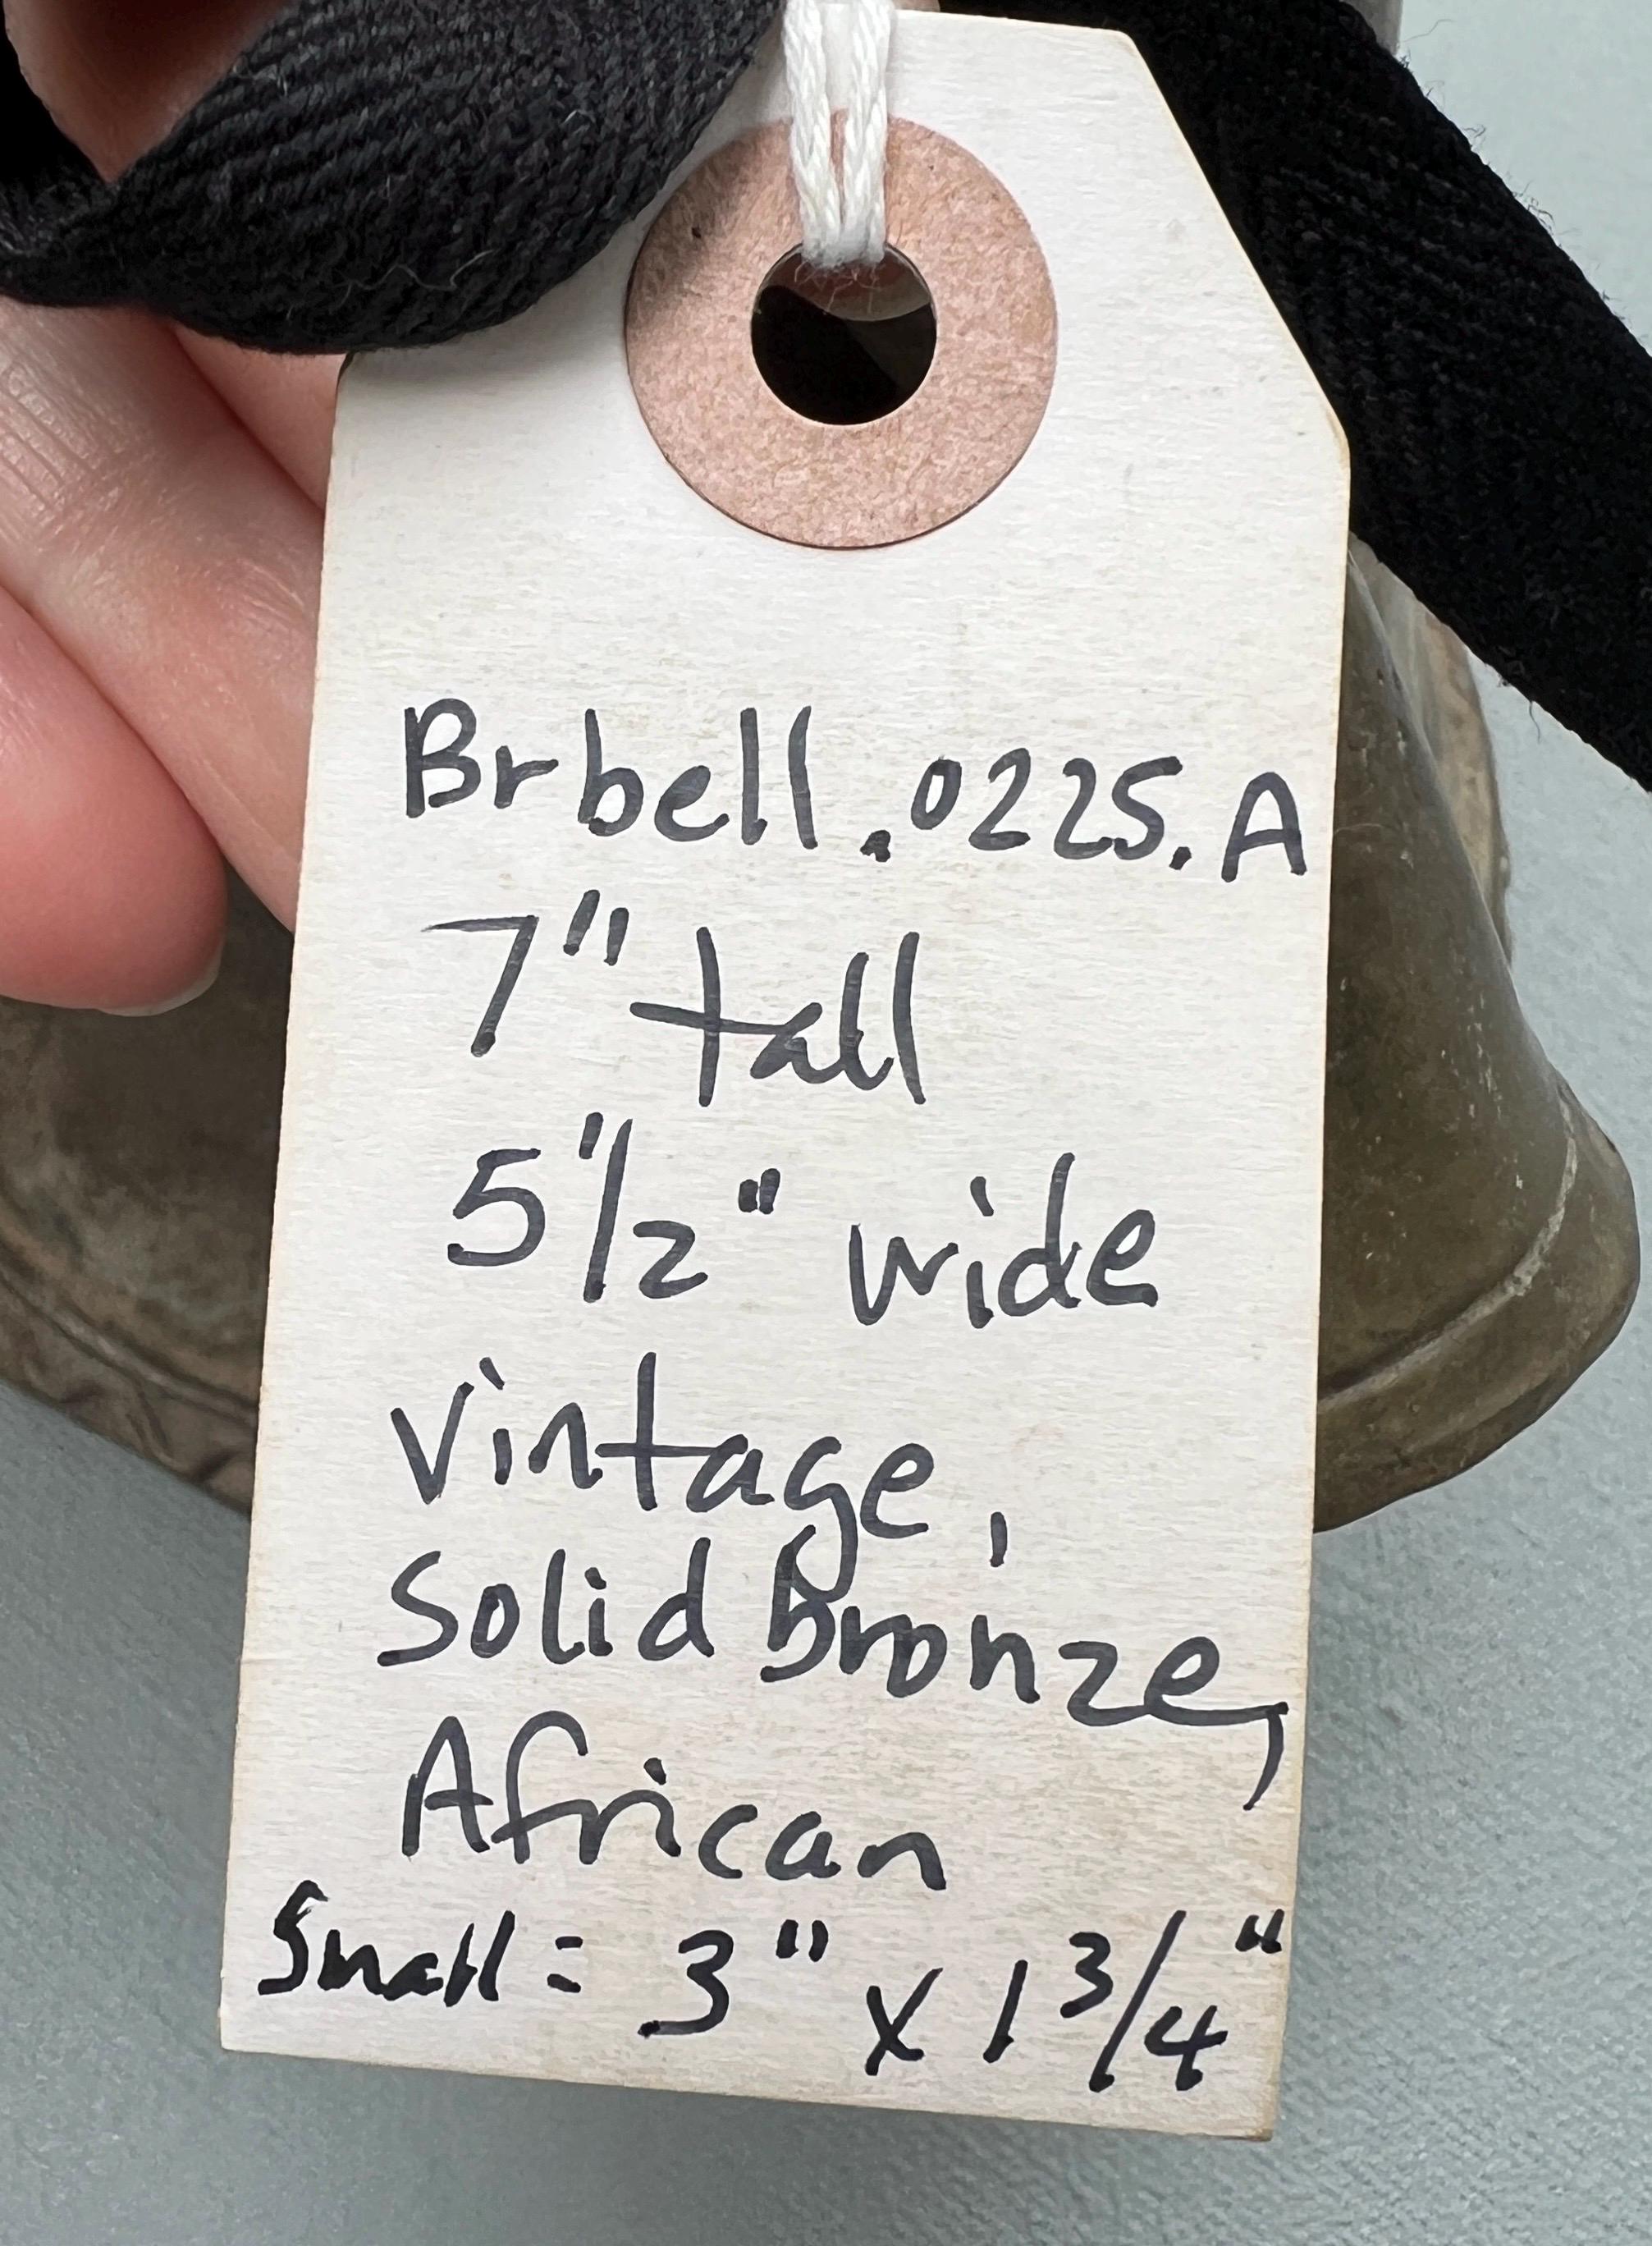 Brbell.0225.A
7" tall
5 1/2" wide
Vintage,
Solid Bronze,
African
Small = 3" x 1 3/4"